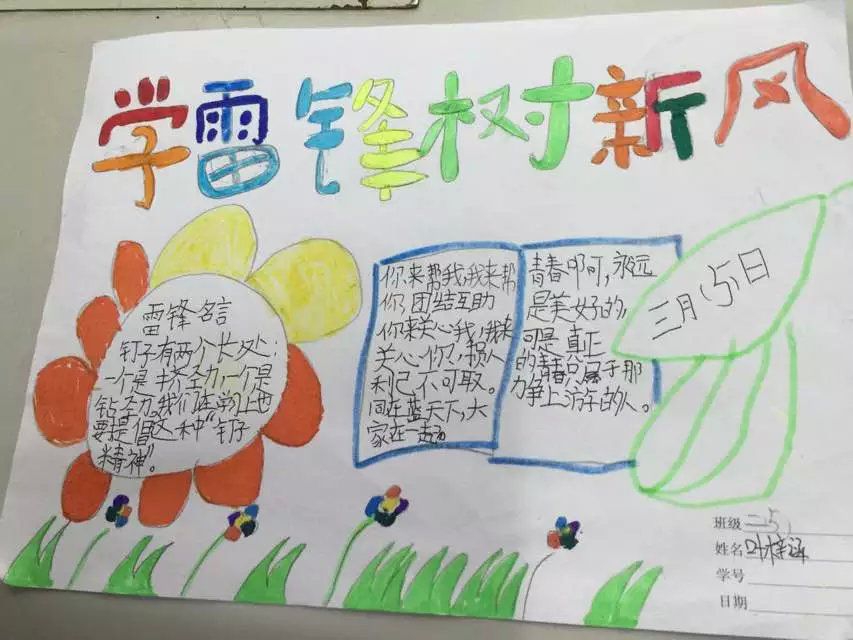 学雷锋树新风
雷锋名言
钉子有两个长处:
一个是挤劲力一个是
钻劲力我们在学习上也
要提倡这种"钉子
精神"。
你来帮我,我来帮
你,团结互助
你来关心我,我来
关心你,损人
利己不可取。
同在蓝天下,大
家在一起
青春啊可,永远
是美好的,
可是真正
的青春只属于那
力争上游的人。
三月(5)日
班级 二(5)
姓名
学号
日期